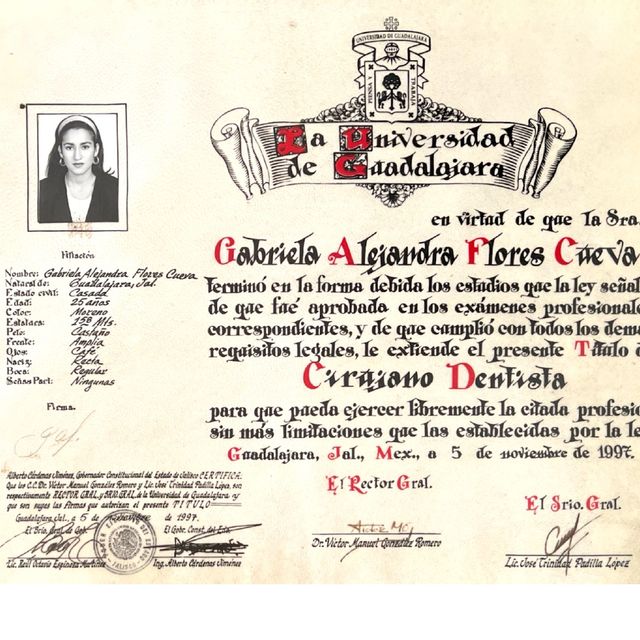 UNIVERSIDAD DE GUADALAJARA
PIENSA Y
TRABAJA
La Universidad
de Guadalajara
en virtud de que la Sra.
Gabriela Alejandra Flores Cueva
terminó en la forma debida los estudios que la ley señal
de que fué aprobada en los exámenes profesionale
correspondientes, y de que cumplió con todos los dem
requisitos legales, le extiende el presente Título d
Cirujano Dentista
para que pueda ejercer libremente la citada profesió
sin más limitaciones que las establecidas por la le
Guadalajara, Jal., Mex., a 5 de noviembre de 1997.
Filiación
Nombre: Gabriela Alejandra Flores Cueva
Natural de: Guadalajara, Jal.
Estado civil: Casada
Edad: 25 años
Color: Moreno
Estatura: 1.58 Mts.
Pelo: Castaño
Frente: Amplia
Ojos: Café
Nariz: Recta
Boca: Regular
Señas Part: Ningunas
Firma.
Alberto Cárdenas Jiménez, Gobernador Constitucional del Estado de Jalisco CERTIFICA:
Que los C.C. Dr. Víctor Manuel González Romero y Lic. José Trinidad Padilla López, son
respectivamente RECTOR GRAL. y SRIO. GRAL. de la Universidad de Guadalajara y
que son suyas las firmas que autorizan el presente TITULO
Guadalajara, Jal., a 5 de noviembre de 1997.
El Srio. Gral. de Gob. El Gob. Const. del Edo.
Lic. Raúl Octavio Espinoza Martínez Ing. Alberto Cárdenas Jiménez
JALISCO
El Rector Gral.
Dr. Víctor Manuel González Romero
El Srio. Gral.
Lic. José Trinidad Padilla López